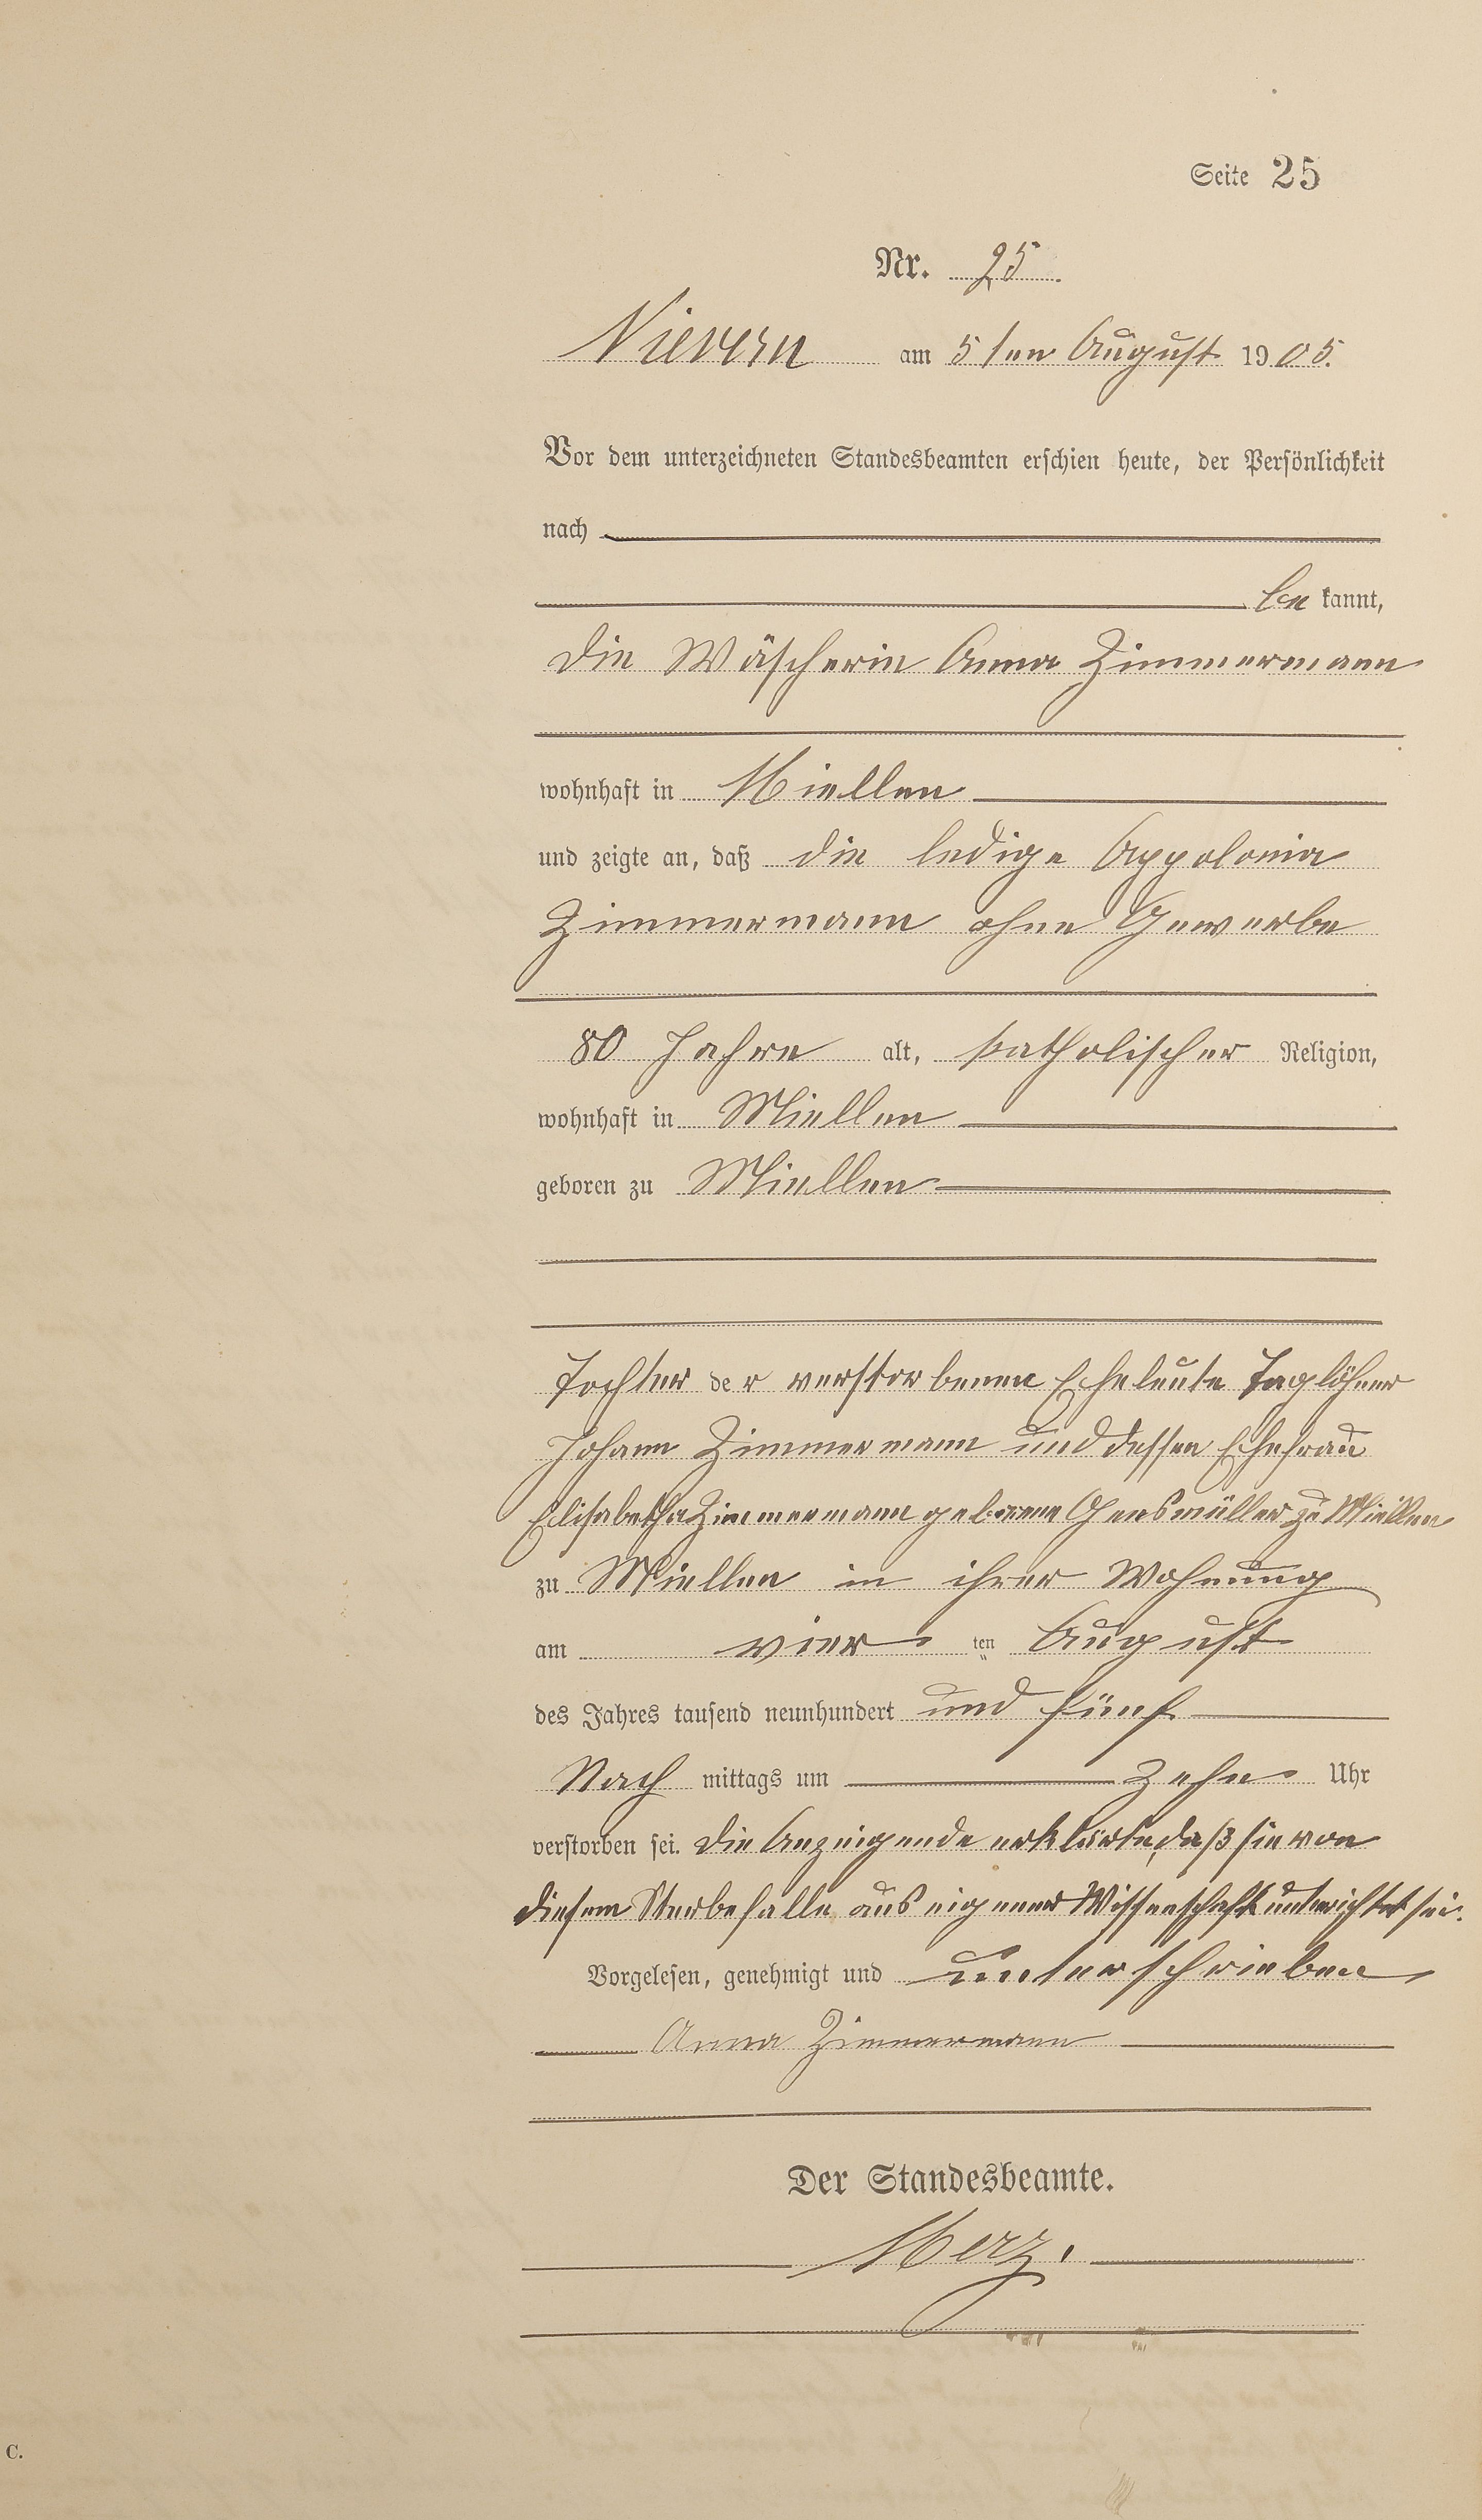 Seite 25
Nr. 25.
Nievern am 5ten August 1905.
Vor dem unterzeichneten Standesbeamten erschien heute, der Persönlichkeit
nach
be kannt,
die Wäscherin Anna Zimmermann
wohnhaft in Miellen
und zeigte an, daß die ledige Appolonia
Zimmermann ohne Gewerbe
80 Jahre alt, katholischer Religion,
wohnhaft in Miellen
geboren zu Miellen
Tochter der verstorbenen Eheleute Taglöhner
Johann Zimmermann und dessen Ehefrau
Elisabetha Zimmermann geborene zu Miellen
zu Miellen in ihrer Wohnung
am vier ten August
des Jahres tausend neunhundert und fünf
Nach mittags um zehn Uhr
verstorben sei. Die Anzeigende erklärte, daß sie von
diesem Sterbefalle aus eigener Wissenschaft unterichtet sei.
Vorgelesen, genehmigt und unterschrieben
Anna Zimmermann
Der Standesbeamte.
Merz.
C.